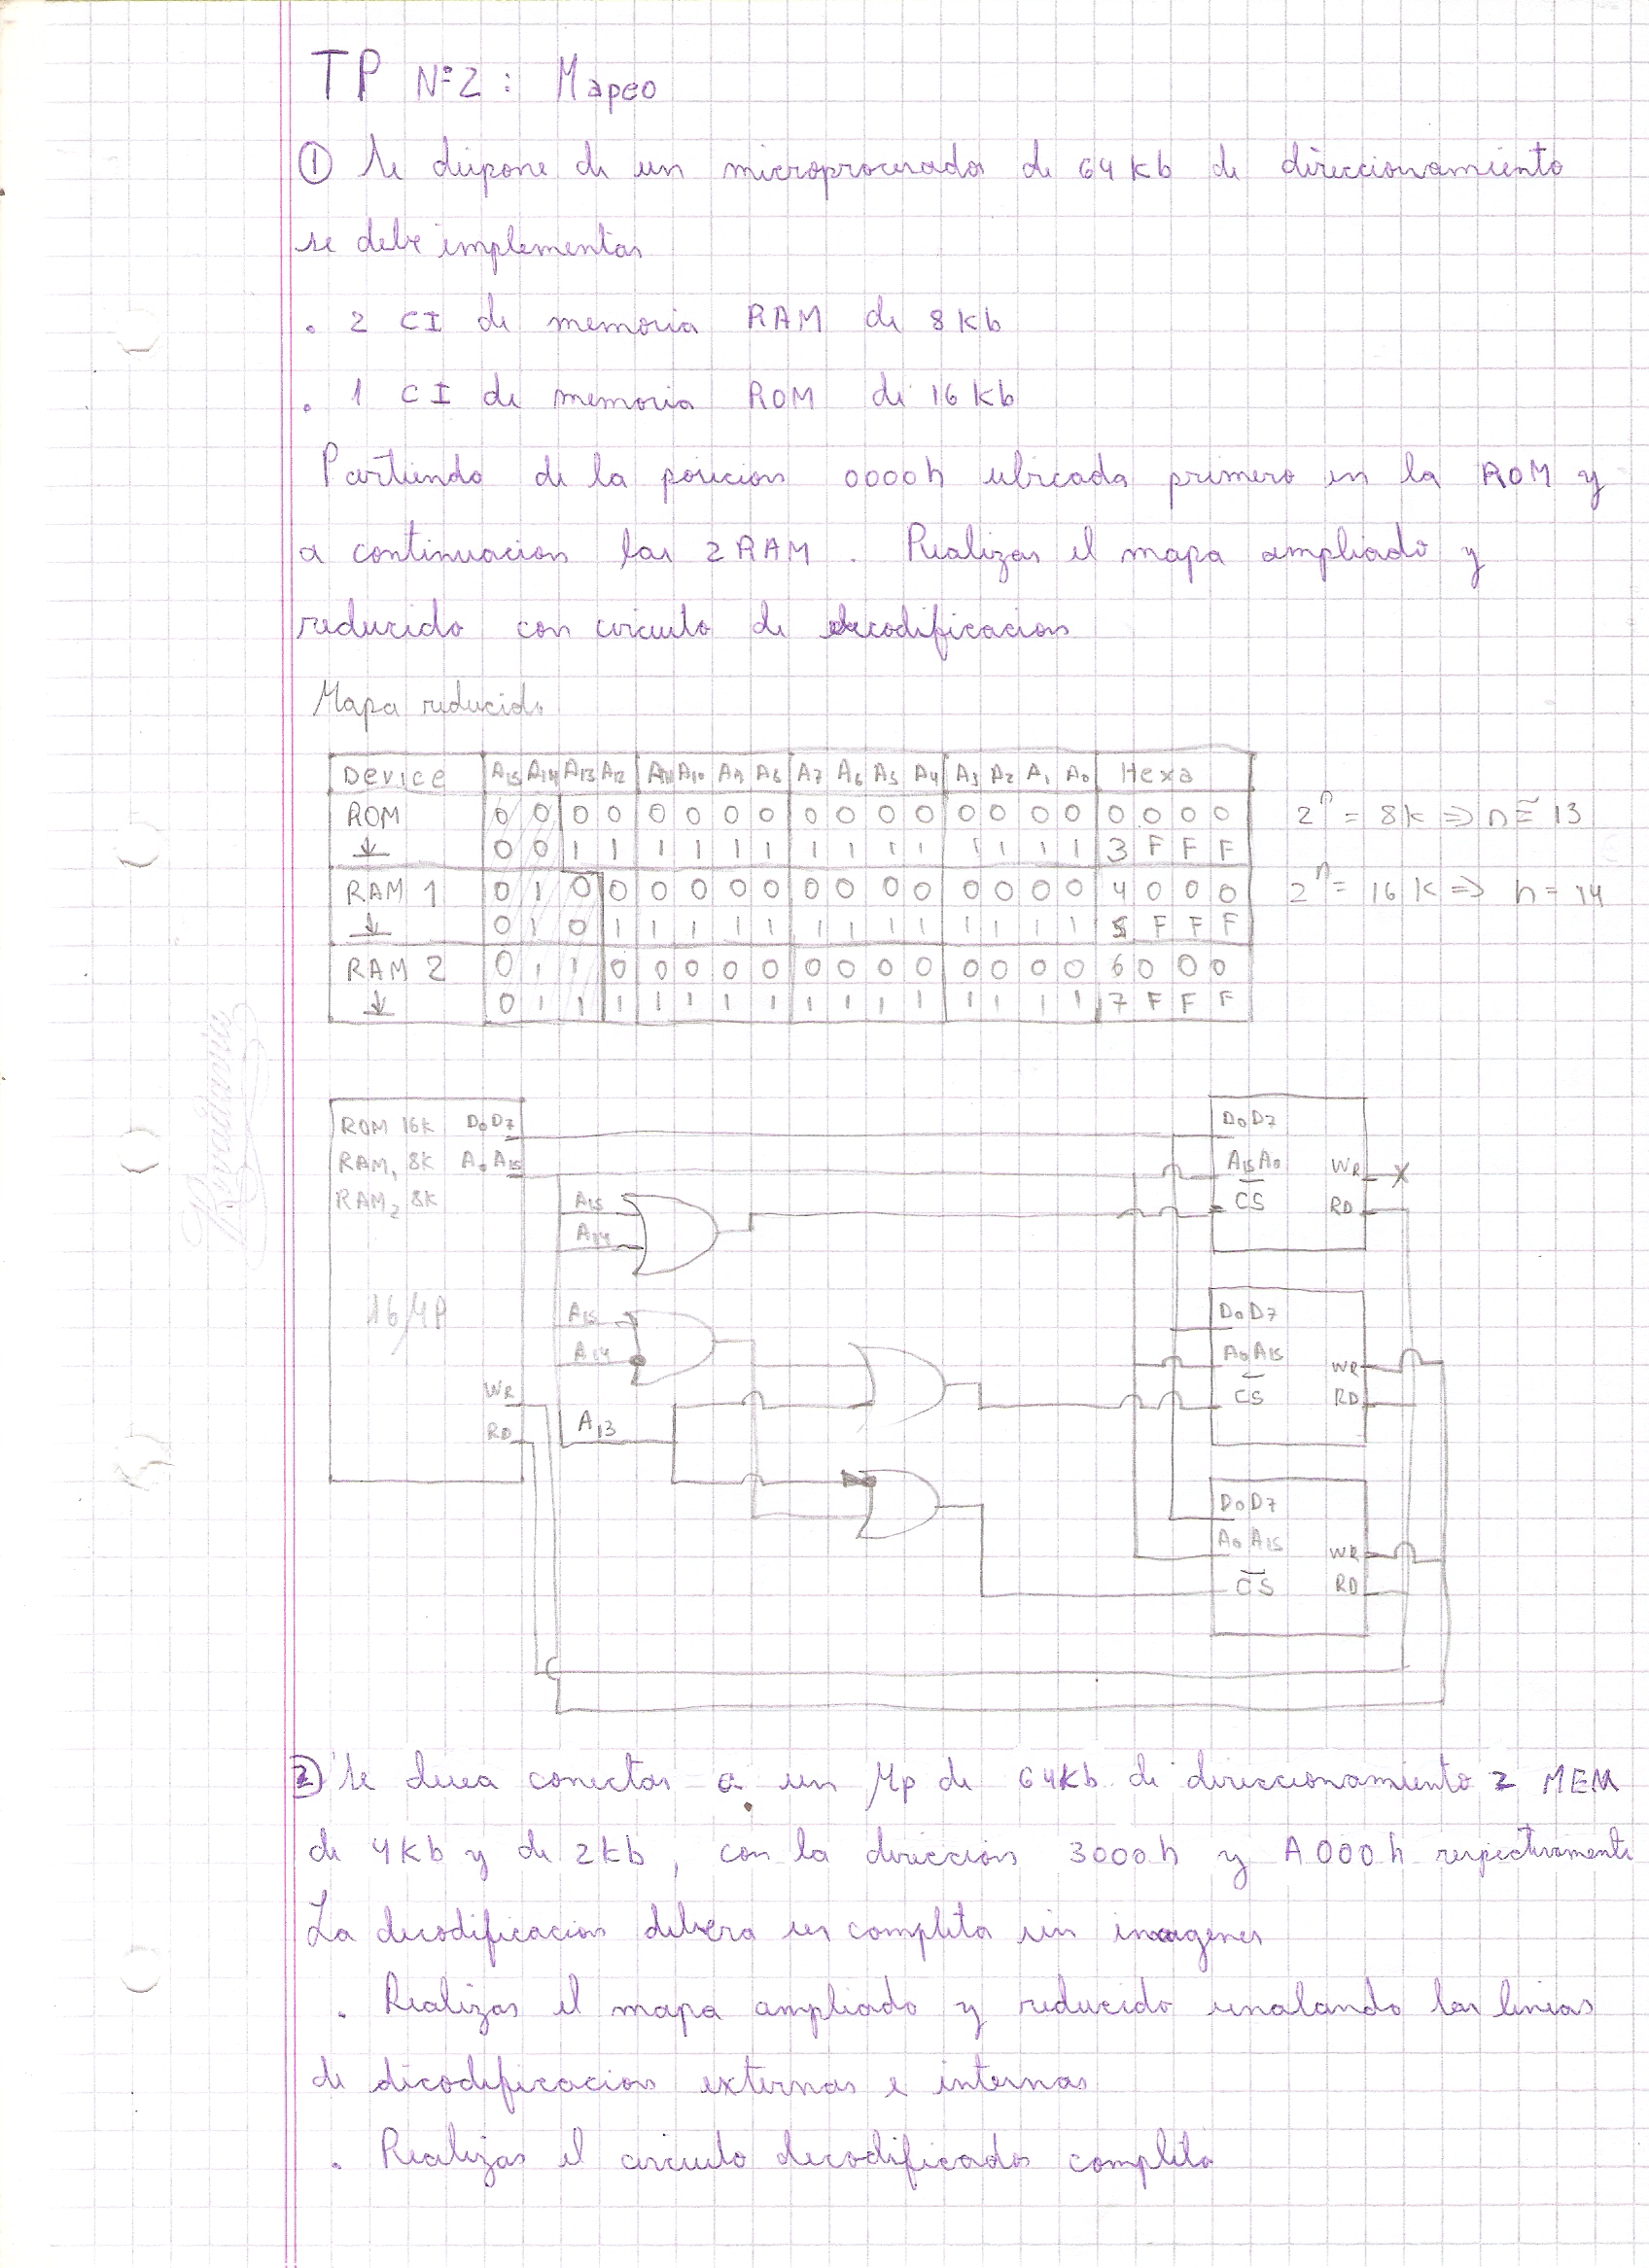 TP Nº2: Mapeo
① Se dispone de un microprocesador de 64 Kb de direccionamiento
se debe implementar
. 2 CI de memoria RAM de 8 Kb
. 1 CI de memoria ROM de 16 Kb
Partiendo de la posicion 0000h ubicada primero en la ROM y
a continuacion las 2 RAM. Realizar el mapa ampliado y
reducido con circuito de decodificacion
Mapa reducido
Device A15 A14 A13 A12 A11 A10 A9 A8 A7 A6 A5 A4 A3 A2 A1 A0 Hexa
ROM 0 0 0 0 0 0 0 0 0 0 0 0 0 0 0 0 0 0 0 0 2^n = 8k => n = 13
↓ 0 0 1 1 1 1 1 1 1 1 1 1 1 1 1 1 3 F F F
RAM 1 0 1 0 0 0 0 0 0 0 0 0 0 0 0 0 0 4 0 0 0 2^n = 16 K => n = 14
↓ 0 1 0 1 1 1 1 1 1 1 1 1 1 1 1 1 5 F F F
RAM 2 0 1 1 0 0 0 0 0 0 0 0 0 0 0 0 0 6 0 0 0
↓ 0 1 1 1 1 1 1 1 1 1 1 1 1 1 1 1 7 F F F
ROM 16K D0 D7
RAM1 8K A0 A15
RAM2 8K
WR
RD
A15
A14
A15
A14
A13
D0 D7
A15 A0 WR X
CS RD
D0 D7
A0 A15 WR
CS RD
D0 D7
A0 A15 WR
CS RD
② Se desea conectar a un Mp de 64Kb de direccionamiento 2 MEM
de 4Kb y de 2Kb, con la direccion 3000h y A000h respectivamente
La decodificacion debera ser completa sin imagenes
. Realizar el mapa ampliado y reducido senalando las lineas
de dicodificacion externas e internas
. Realizar el circuito decodificador completo